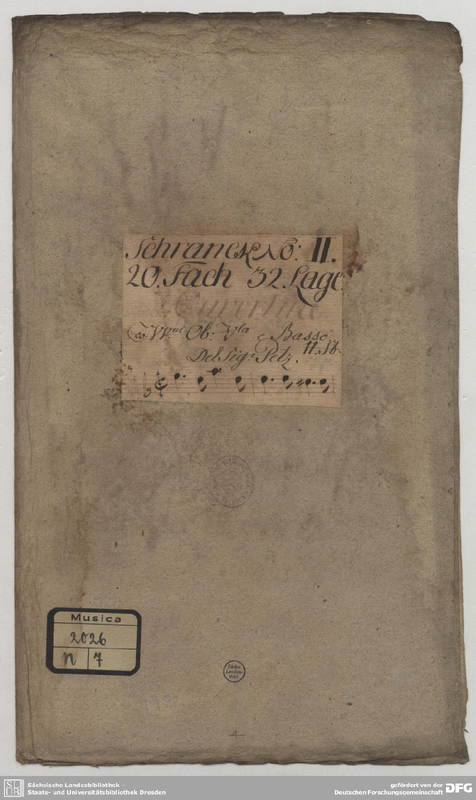 Schranck No: II.
20. Fach 32. Lage
Ouverture
Ob. Vla e Basso
Del Sig: Petz.
Musica
2026
n 7
4
Sächsische Landesbibliothek -
Staats- und Universitätsbibliothek Dresden
gefördert von der
Deutschen Forschungsgemeinschaft
DFG